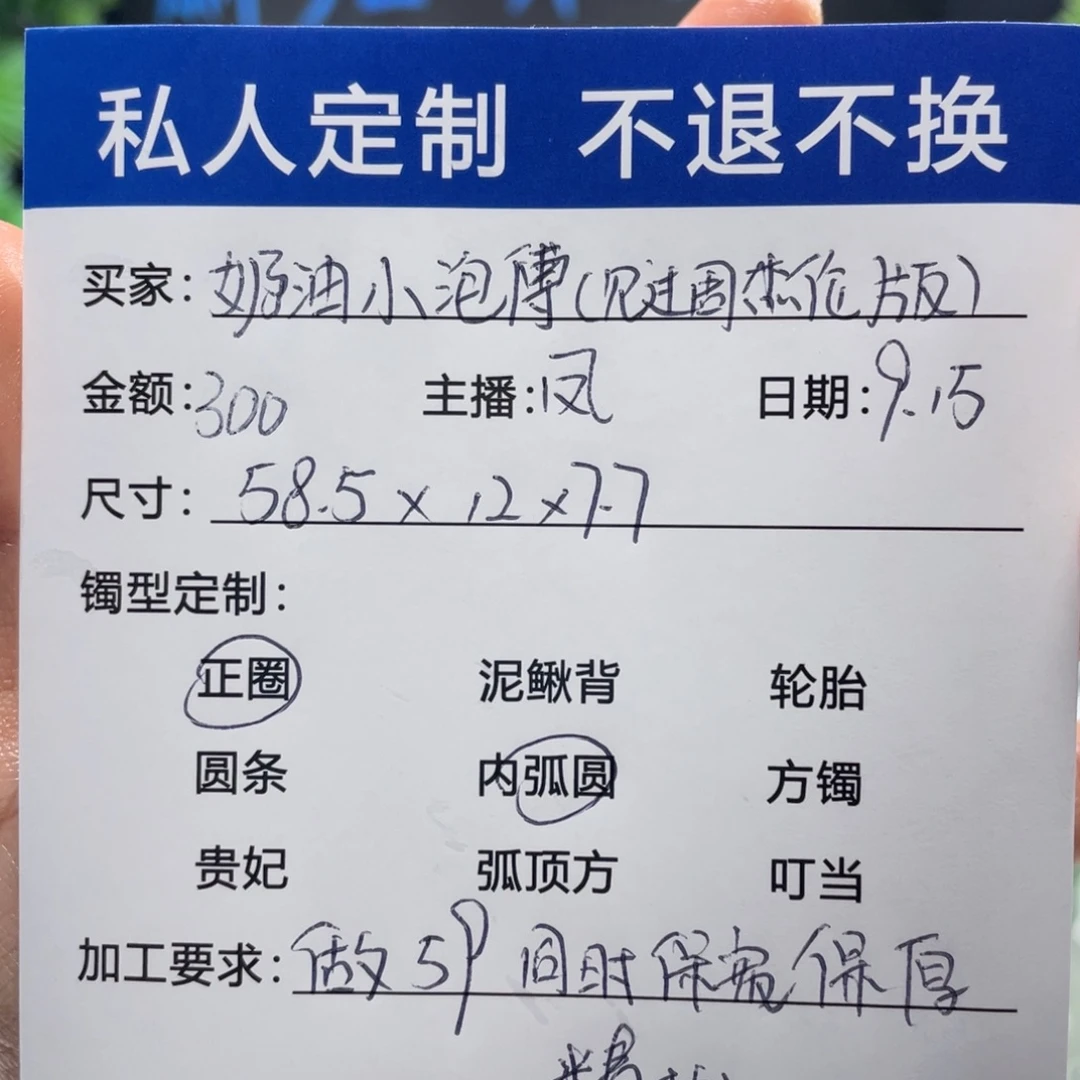 私人定制 不退不换
买家：奶油小泡傅（见过周杰伦片版）
金额：300 主播：凤 日期：9.15
尺寸：58.5×12×7.7
镯型定制：
正圈 泥鳅背 轮胎
圆条 内弧圆 方镯
贵妃 弧顶方 叮当
加工要求：做59同时保宽保厚